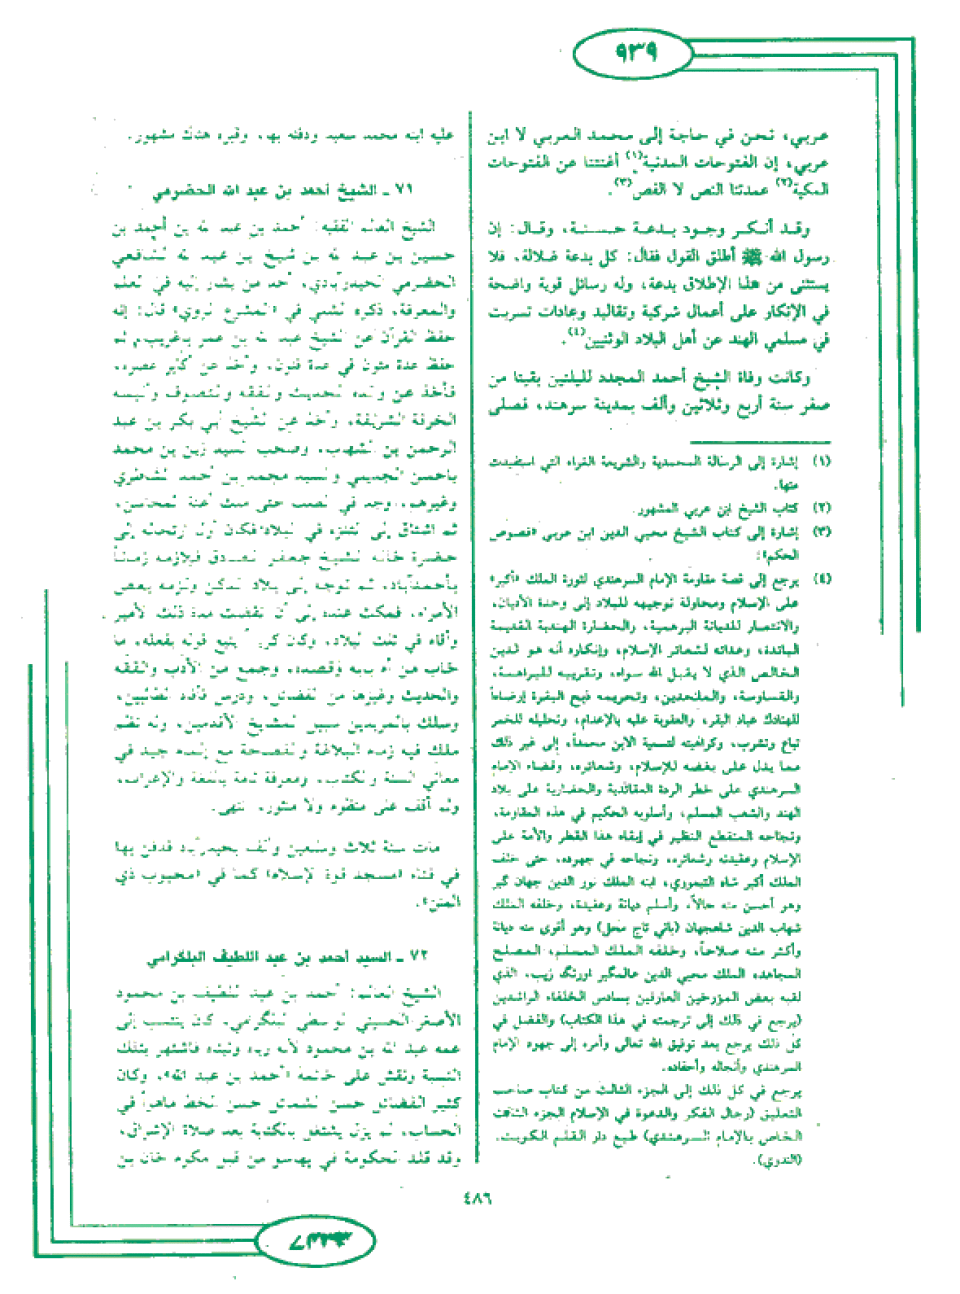 ٩٣٩
عربي، نحن في حاجة إلى محمد العربي لا ابن
عربي، إن الفتوحات المدنية(١) أغنتنا عن الفتوحات
المكية(٢) عمدتنا النص لا الفص(٣).
وقد أنكر وجود بدعة حسنة، وقال: إن
رسول الله ﷺ أطلق القول فقال: كل بدعة ضلالة، فلا
يستثنى من هذا الإطلاق بدعة، وله رسائل قوية واضحة
في الإنكار على أعمال شركية وتقاليد وعادات تسربت
في مسلمي الهند عن أهل البلاد الوثنيين(٤).
وكانت وفاة الشيخ أحمد المجدد لليلتين بقيتا من
صفر سنة أربع وثلاثين وألف بمدينة سرهند، فصلى
(١) إشارة إلى الرسالة المحمدية والشريعة الغراء التي استفيدت
منها.
(٢) كتاب الشيخ ابن عربي المشهور.
(٣) إشارة إلى كتاب الشيخ محيي الدين ابن عربي «فصوص
الحكم».
(٤) يرجع إلى قصة مقاومة الإمام السرهندي لثورة الملك «أكبر»
على الإسلام ومحاولة توجيهه للبلاد إلى وحدة الأديان،
والانتصار للديانة البرهمية، والحضارة الهندية القديمة
البائدة، وعدائه لشعائر الإسلام، وإنكاره أنه هو الدين
الخالص الذي لا يقبل الله سواه، وتقريبه للبراهمة،
والقساوسة، والملحدين، وتحريمه ذبح البقرة إرضاءاً
للهنادك عباد البقر، والعقوبة عليه بالإعدام، وتحليله للخمر
تباع وتشرب، وكراهيته لتسمية الابن محمداً، إلى غير ذلك
مما يدل على بغضه للإسلام، وشعائره، وقضاء الإمام
السرهندي على خطر الردة العقائدية والحضارية على بلاد
الهند والشعب المسلم، وأسلوبه الحكيم في هذه المقاومة،
ونجاحه المنقطع النظير في إبقاء هذا القطر والأمة على
الإسلام وعقيدته وشعائره، ونجاحه في جهوده، حتى خلف
الملك أكبر شاه التيموري، ابنه الملك نور الدين جهان كير
وهو أحسن منه حالاً، وأسلم ديانة وعقيدة، وخلفه الملك
شهاب الدين شاهجهان (باني تاج محل) وهو أقوى منه ديانة
وأكثر منه صلاحاً، وخلفه الملك المسلم، المصلح
المجاهد، الملك محيي الدين عالمكير اورنك زيب، الذي
لقبه بعض المؤرخين العارفين بسادس الخلفاء الراشدين
(يرجع في ذلك إلى ترجمته في هذا الكتاب) والفضل في
كل ذلك يرجع بعد توفيق الله تعالى وأمره إلى جهود الإمام
السرهندي وأنجاله وأحفاده.
يرجع في كل ذلك إلى الجزء الثالث من كتاب صاحب
التعليق (رجال الفكر والدعوة في الإسلام الجزء الثالث
الخاص بالإمام السرهندي) طبع دار القلم الكويت.
(الندوي).
عليه ابنه محمد سعيد ودفنه بها، وقبره هناك مشهور.
٧١ ـ الشيخ أحمد بن عبد الله الحضرمي
الشيخ العالم الفقيه: أحمد بن عبد الله بن أحمد بن
حسين بن عبد الله بن شيخ بن عبد الله الشافعي
الحضرمي الحيدرآبادي، أحد من يشار إليه في العلم
والمعرفة، ذكره الشلي في «المشرع الروي» قال: إنه
حفظ القرآن عن الشيخ عبد الله بن عمر باغريب، ثم
حفظ عدة متون في عدة فنون، وأخذ عن أكابر عصره،
فأخذ عن والده الحديث والفقه والتصوف وألبسه
الخرقة الشريفة، وأخذ عن الشيخ أبي بكر بن عبد
الرحمن بن الشهاب، وصحب السيد زين بن محمد
باحسن الحديلي والسيد محمد بن أحمد الشاطري
وغيرهم، وجد في الطلب حتى ملك أعنة المحاسن،
ثم اشتاق إلى التنزه في البلاد، فكان أول ارتحاله إلى
حضرة خاله الشيخ جعفر الصادق فلازمه زمناً
بأحمدآباد، ثم توجه إلى بلاد الدكن ولزمه بعض
الأمراء، فمكث عنده إلى أن انقضت مدة ذلك الأمير
وأقام في تلك البلاد، وكان كريماً يتبع قوله بفعله، ما
خاب من أم بابه وقصده، وجمع من الأدب والفقه
والحديث وغيرها من الفضائل، ودرس فأفاد الطالبين،
وسلك بالمريدين سبيل المشايخ الأقدمين، وله نظم
ملك فيه زمام البلاغة والفصاحة مع إلمام جيد في
معاني السنة والكتاب، ومعرفة تامة باللغة والإعراب،
ولم أقف على منظومه ولا منثوره، انتهى.
مات سنة ثلاث وسبعين وألف بحيدرآباد فدفن بها
في فناء (مسجد قوة الإسلام) كما في «محبوب ذي
المنن».
٧٢ ـ السيد أحمد بن عبد اللطيف البلكرامي
الشيخ العالم: أحمد بن عبد اللطيف بن محمود
الأصغر الحسيني الواسطي البلكرامي، كان ينتسب إلى
عمه عبد الله بن محمود لأنه رباه وتبناه فاشتهر بتلك
النسبة ونقش على خاتمه «أحمد بن عبد الله»، وكان
كثير الفضائل حسن الشمائل حسن الخط ماهراً في
الحساب، لم يزل يشتغل بالكتابة بعد صلاة الإشراق،
وقد قلد الحكومة في بهاسو من قبل مكرم خان بن
٤٨٦